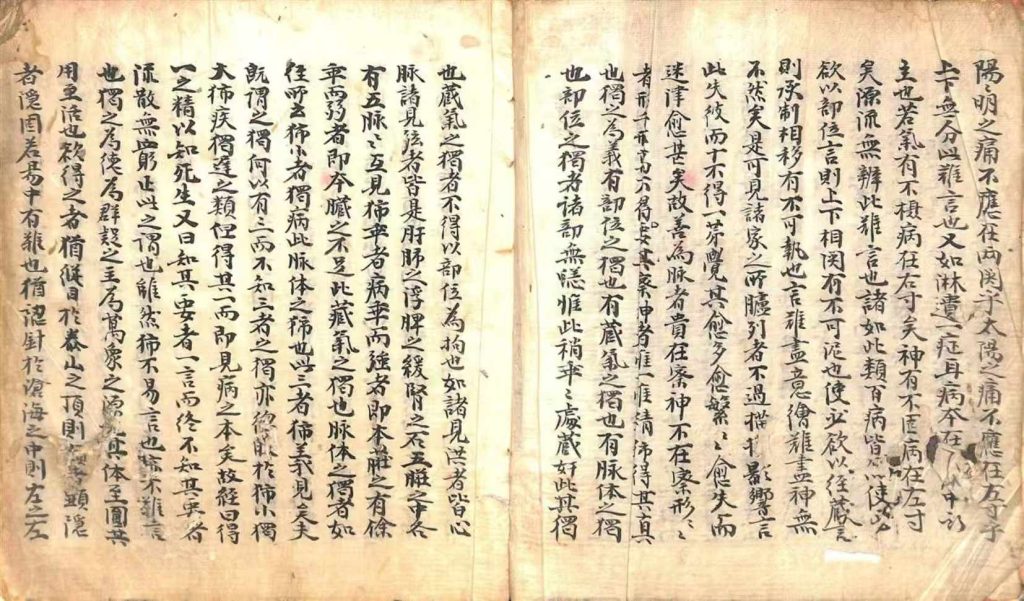 陽〻明之痛不應在兩関乎太陽之痛不應在左寸乎
上下無分此難言也又如淋遺一症耳病本在下尺中所
主也若氣有不摄病在右寸矣神有不固病在左寸
矣源流無辨此難言也諸如此類百病皆以使必
欲以部位言則上下相関有不可泥也使必欲以経蔵言
則承制相移有不可執也言難盡意繪難盡神無
不然矣是可見諸家之所臚列者不過描摸影響言
此失彼而十不得一苐覺其愈多愈繁〻愈失而
迷津愈甚矣故善為脉者貴在察神不在察形〻
者形千形萬不得其要其察神者惟一惟精㹨得其真
也獨之為義有部位之獨也有蔵氣之獨也有脉体之獨
也部位之獨者諸部無恙惟此稍乖〻處蔵奸此其獨
也蔵氣之獨者不得以部位為拘也如諸見洪者皆心
脉諸見弦者皆是肝肺之浮脾之緩腎之石五臟之中各
有五脉〻互見㹨乖者病乖而强者即本臟之有餘
乖而弱者即本臟之不足此蔵氣之獨也脉体之獨者如
径所云㹨小者獨病此脉体之㹨也此三者㹨義見矣夫
既謂之獨何以有三而不知三者之獨亦總歸於㹨小獨
大㹨疾獨遲之類但得其一而即見病之本矣故経曰得
一之精以知死生又曰知其要者一言而終不知其要者
流散無窮正此之謂也雖然㹨不易言也亦不難言
也獨之為德為群疑之主為萬象之源其体至圓其
用至活也欲得之者猶縱目於泰山之頂則顕隠
者隠固若易中有難也猶認針於滄海之中則左之左